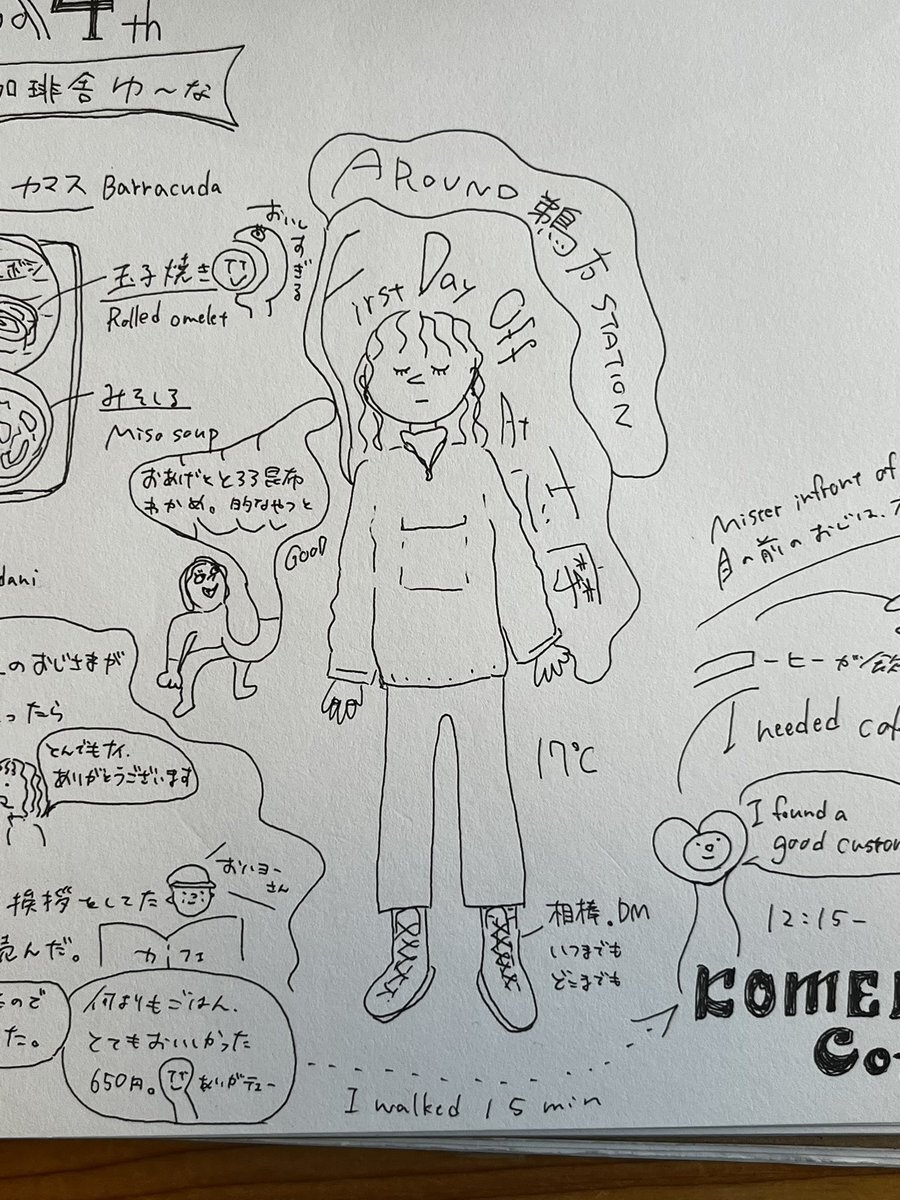 4th
珈琲舎 ゆ〜な
カマス Barracuda
おいしすぎる
玉子焼き
Rolled omelet
みそしる
Miso soup
おあげととろろ昆布
わかめ。的なやつと
GOOD
AROUND 鵜方 STATION
First Day Off
At
17℃
のおじさまが
ったら
とんでもナイ、
ありがとうございます
挨拶をしてた
おハヨーさん
読んだ。
カフェ
ので
た。
何よりもごはん、
とてもおいしかった
650円。
ありがテュー
相棒.DM
いつまでも
どこまでも
I walked 15 min
Mister infront of
目の前のおじは、
コーヒーが飲
I needed
I found a
good custom
12:15-
KOME
Co